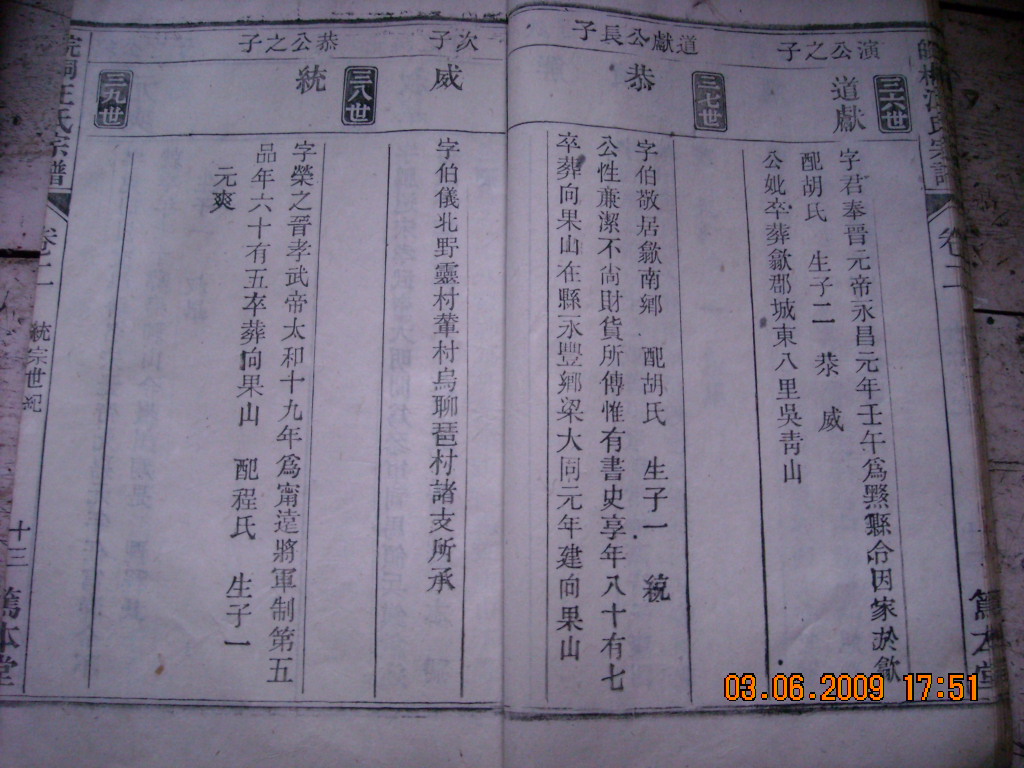 三六世
演公之子
道獻
字君奉晉元帝永昌元年壬午為黟縣令因家於歙
配胡氏 生子二 恭 威
公妣卒葬歙郡城東八里吳青山
三七世
道獻公長子
恭
字伯敬居歙南鄉 配胡氏 生子一 統
公性廉潔不尚財貨所傳惟有書史享年八十有七
卒葬向果山在縣永豐鄉梁大同元年建向果山
次子
威
字伯儀北野靈村葦村烏聊琶村諸支所承
三八世
恭公之子
統
字榮之晉孝武帝太和十九年為甯遠將軍制第五
品年六十有五卒葬向果山 配程氏 生子一
元爽
三九世
汪氏宗譜
卷二
統宗世紀
十三
篤本堂
卷二
篤本堂
03.06.2009 17:51